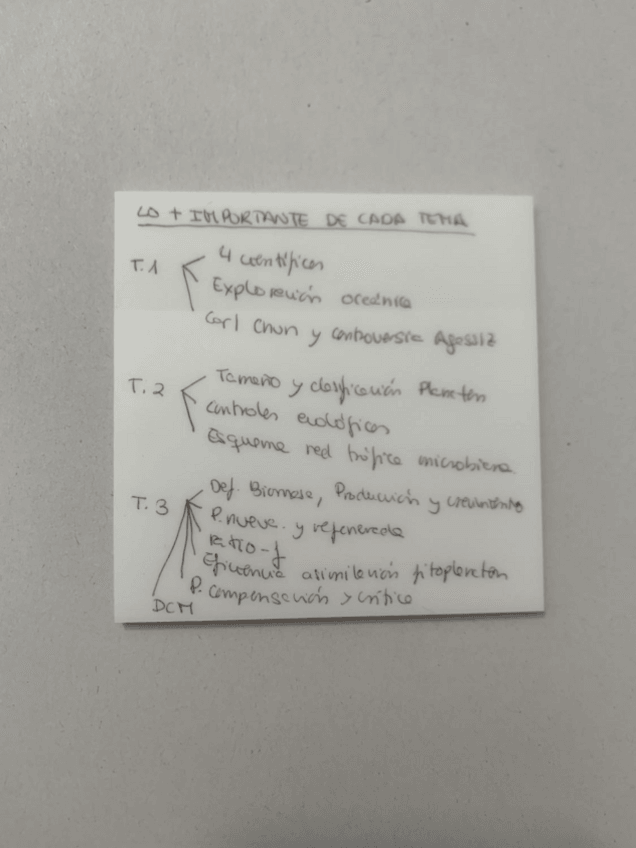 LO + IMPORTANTE DE CADA TEMA
T.1 4 científicos
Exploración oceánica
Carl Chun y controversia Agassiz
T.2 Tamaño y clasificación Plancton
Controles ecológicos
Esquema red trófica microbiana
T.3 Def. Biomasa, Producción y crecimiento
P. nueva. y regenerada
Ratio-f
Eficiencia asimilación fitoplancton
P. compensación y crítica
DCM